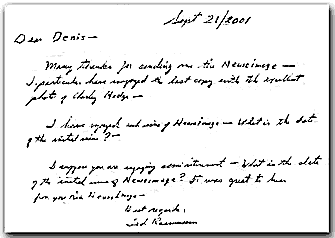 Sept 21/2001
Dear Denis -
Many thanks for sending me the Newsimage -
I particular have enjoyed the last copy with the excellent
photo of Charley Hodge -
I have enjoyed each issue of Newsimage - What is the date
of the initial issue? -
I suppose you are enjoying semi-retirement - What is the date
of the initial issue of Newsimage? It was great to hear
from you via Newsimage -
Best regards,
Ted Rasmussen